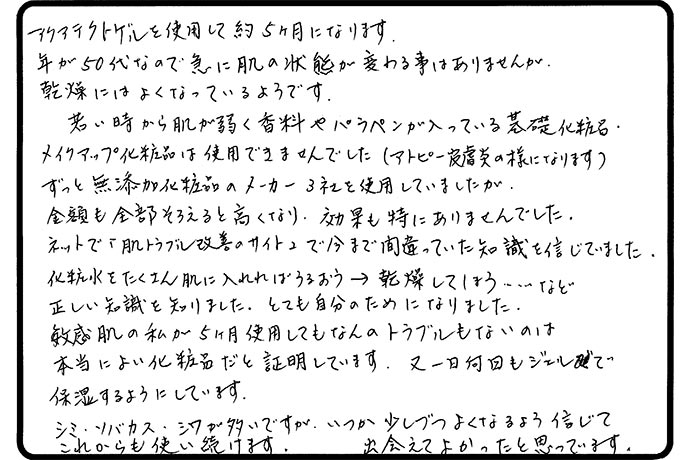 アクアテクトゲルを使用して約5ヶ月になります.
年が50代なので急に肌の状態が変わる事はありませんが.
乾燥にはよくなっているようです.
若い時から肌が弱く香料やパラペンが入っている基礎化粧品.
メイクアップ化粧品は使用できませんでした(アトピー皮膚炎の様になります)
ずっと無添加化粧品のメーカー3社を使用していましたが.
金額も全部そろえると高くなり.効果も特にありませんでした.
ネットで「肌トラブル改善のサイト」で今まで間違っていた知識を信じてました.
化粧水をたくさん肌に入れればうるおう→乾燥してしまう……など
正しい知識を知りました.とても自分のためになりました.
敏感肌の私が5ヶ月使用してもなんのトラブルもないのは
本当によい化粧品だと証明しています.又一日何回もジェルで
保湿するようにしています.
シミ・ソバカス・シワが多いですが.いつか少しづつよくなるよう信じて
これからも使い続けます. 出会えてよかったと思っています.